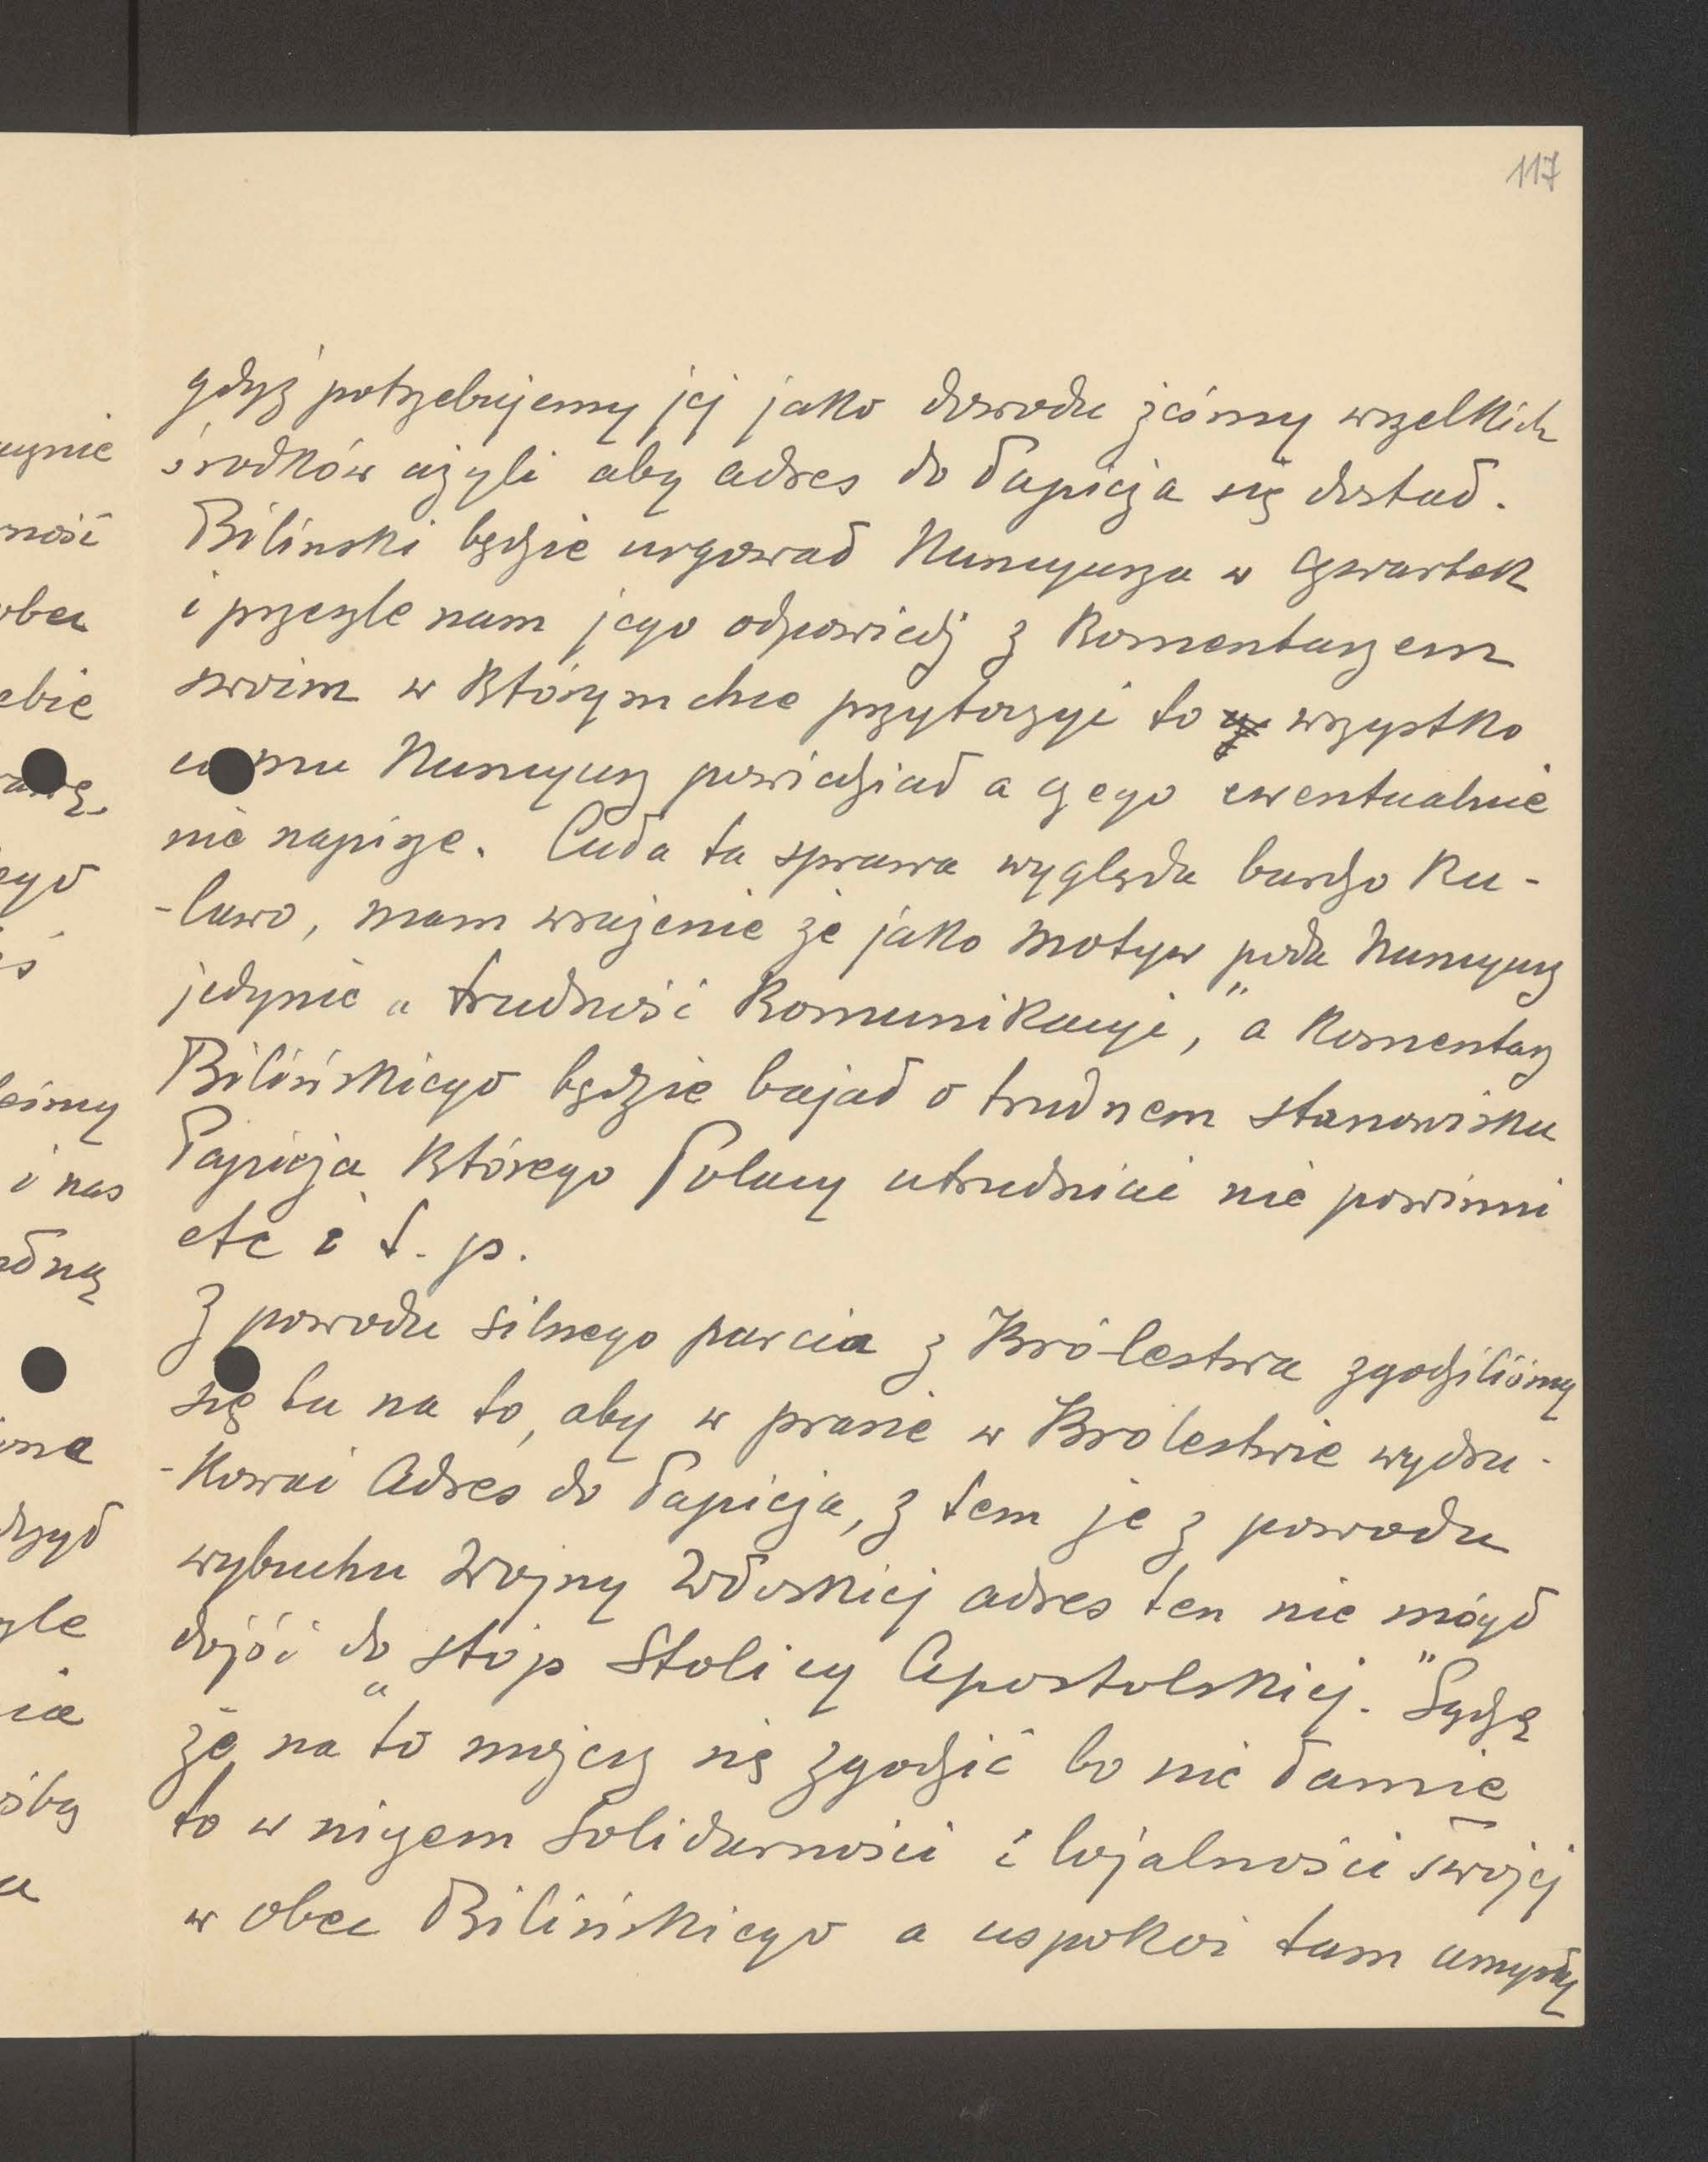 117
gdyż potrzebujemy jej jako dowodu żeśmy wszelkich
środków użyli aby adres do Papieża się dostał.
Biliński będzie urgował Nuncyusza w czwartek
i przeszle nam jego odpowiedź z Komentarzem
swoim w którym chce przytoczyć to wszystko
co mu Nuncyusz powiedział a czego ewentualnie
nie napisze. Cała ta sprawa wygląda bardzo ku-
-lawo, mam wrażenie że jako motyw poda Nuncyusz
jedynie „trudność Komunikacyi," a Komentarz
Bilińskiego będzie bajał o trudnem stanowisku
Papieża którego Polacy utrudniać nie powinni
etc i t. p.
Z powodu silnego parcia z Królestwa zgodziliśmy
się tu na to, aby w prasie w Królestwie wydru-
-kować Adres do Papieża, z tem że z powodu
wybuchu Wojny Włoskiej adres ten nie mógł
dojść do „stóp Stolicy Apostolskiej." Sądzę
że na to możesz się zgodzić bo nie łamie
to w niczem Solidarności i lojalności swojej
w obec Bilińskiego a uspokoi tam umysły
ność
obec
ebie
ego
eśmy
i nas
szle